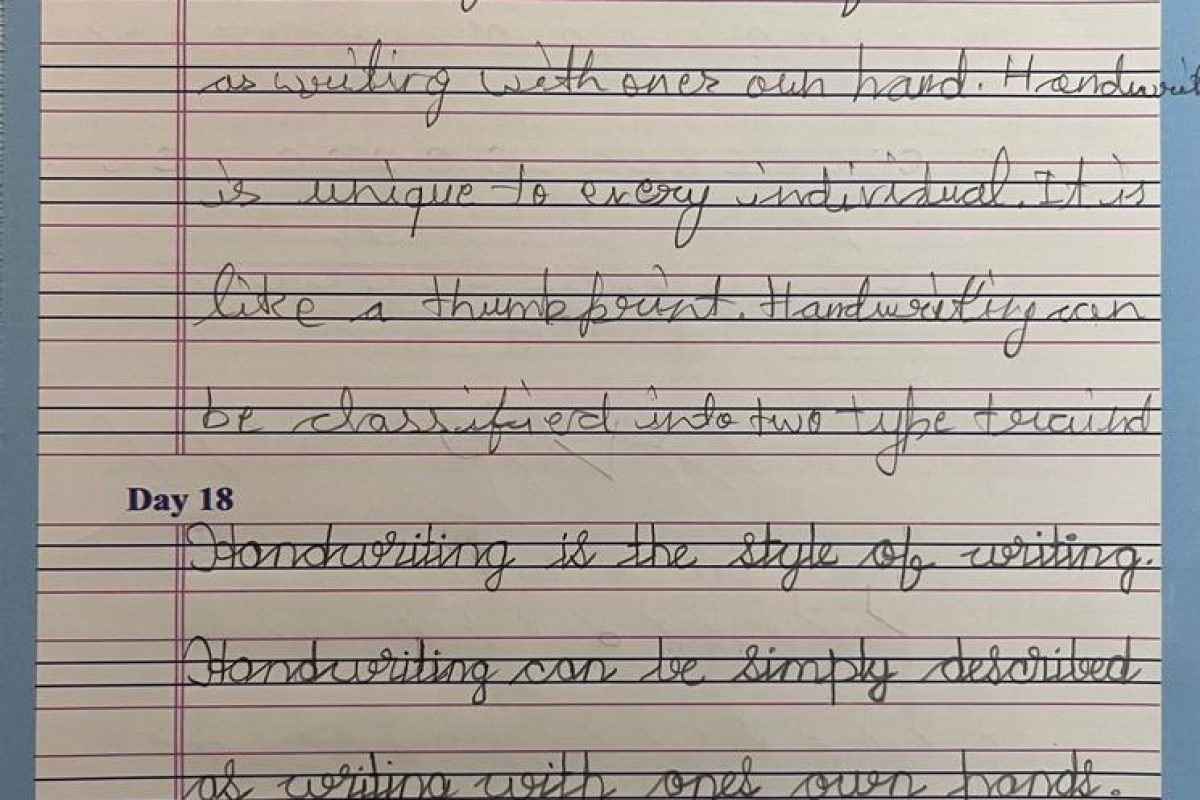 as writing with ones own hand. Handwrit
is unique to every individual. It is
like a thumb print. Handwriting can
be classified into two type traind
Day 18
Handwriting is the style of writing.
Handwriting can be simply described
as writing with ones own hands.